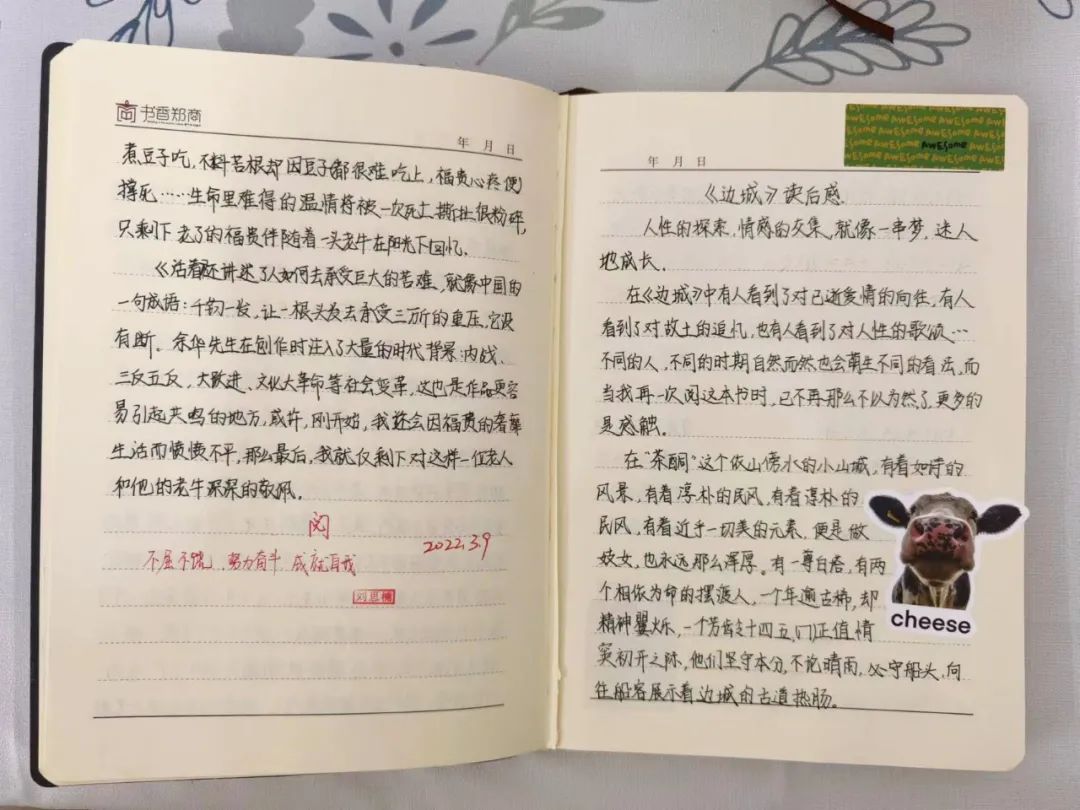 书香郑商
年 月 日
煮豆子吃,不料苦根却因豆子都很难吃上,福贵心疼便
撑死……生命里难得的温情将被一次死亡撕扯很粉碎,
只剩下老了的福贵伴随着一头老牛在阳光下回忆。
《活着》还讲述了人如何去承受巨大的苦难、就像中国的
一句成语:千钧一发,让一根头发去承受三万斤的重压,它没
有断。余华先生在创作时注入了大量的时代背景:内战、
三反五反,大跃进、文化大革命等社会变革,这也是作品更容
易引起共鸣的地方,或许,刚开始,我还会因福贵的奢靡
生活而愤愤不平,那么最后,我就仅剩下对这样一位老人
和他的老牛深深的敬佩。
阅
2022.3.9
不屈不饶,努力奋斗,成就自我
刘思楠
年 月 日
AWESOME
《边城》读后感.
人性的探索,情感的交集,就像一串梦,迷人
地成长.
在《边城》中有人看到了对已逝爱情的向往,有人
看到了对故土的追忆,也有人看到了对人性的歌颂…
不同的人,不同的时期自然而然也会萌生不同的看法,而
当我再一次阅这本书时,已不再那么不以为然了,更多的
是感触。
在"茶酮"这个依山傍水的小山城,有着如诗的
风景,有着淳朴的民风,有着淳朴的
民风,有着近乎一切美的元素,便是做
妓女,也永远那么浑厚。有一尊白塔,有两
个相依为命的摆渡人,一个年逾古稀,却
精神矍烁,一个芳龄十四五,正值情
窦初开之际,他们坚守本分,不论晴雨,必守船头,向
往船客展示着边城的古道热肠。
cheese